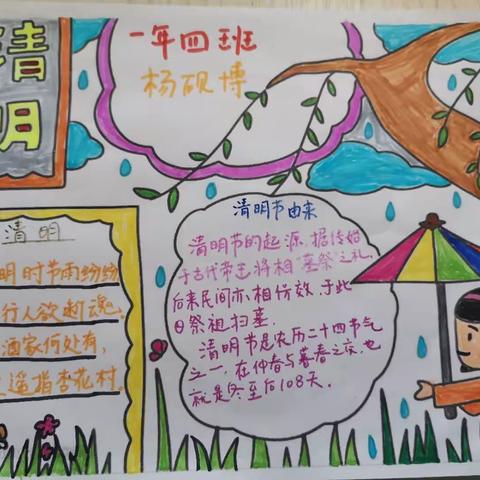 清
明
一年四班
杨砚博
清 明
明时节雨纷纷
行人欲断魂。
酒家何处有,
遥指杏花村。
清明节由来
清明节的起源,据传始
于古代帝王将相“墓祭”之礼,
后来民间亦相仿效,于此
日祭祖扫墓.
清明节是农历二十四节气
之一,在仲春与暮春之交,也
就是冬至后108天。